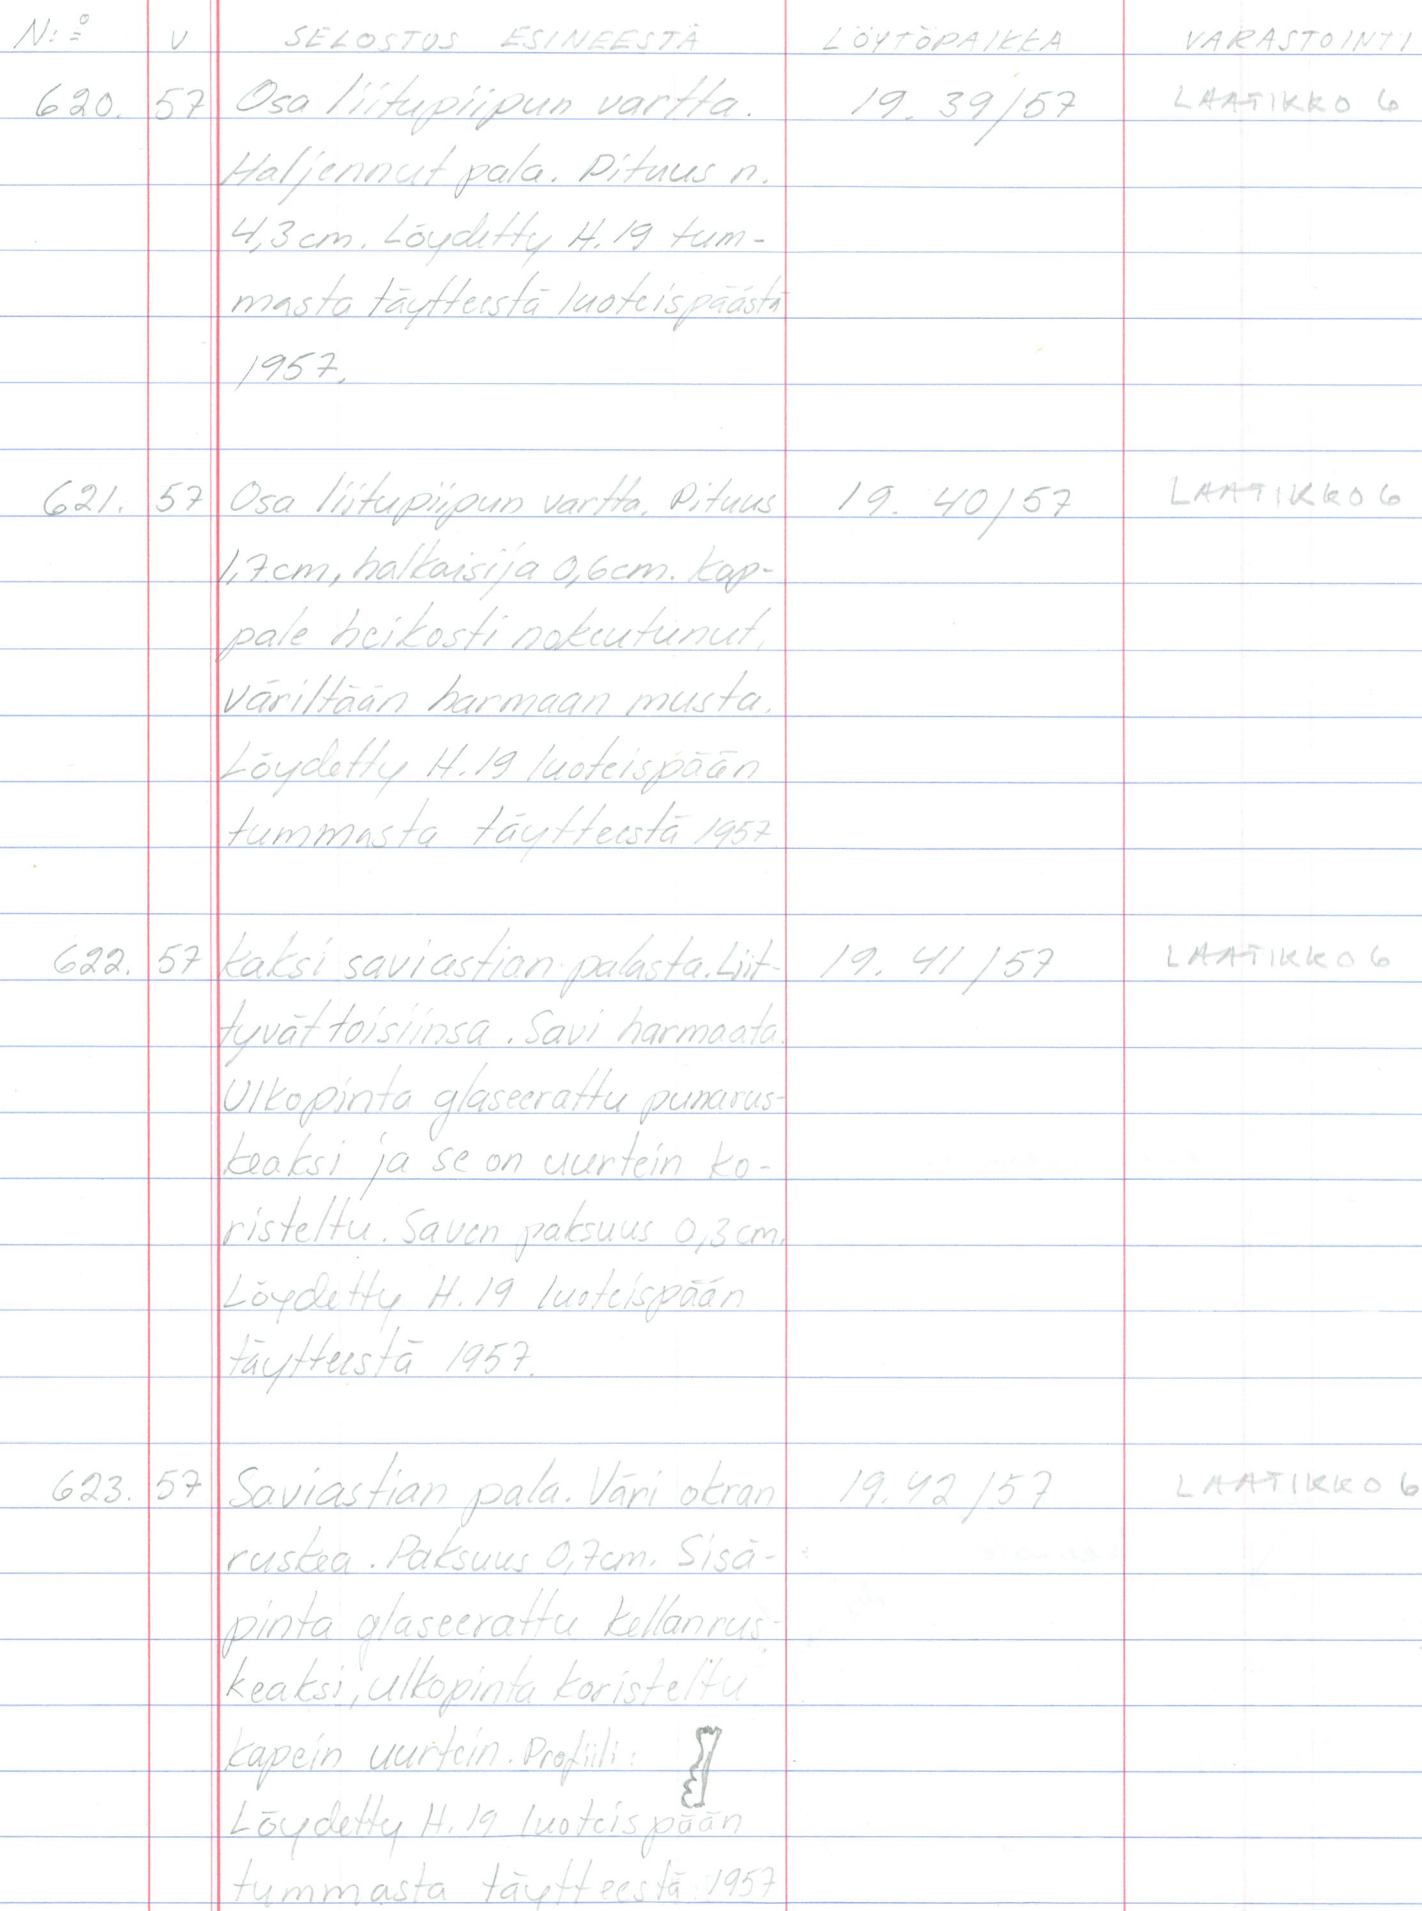 N:o V SELOSTUS ESINEESTÄ LÖYTÖPAIKKA VARASTOINTI
620. 57 Osa liitupiipun vartta. 19. 39/57 LAATIKKO 6
Haljennut pala. Pituus n.
4,3 cm. Löydetty H.19 tum-
masta täytteestä luoteispäästä
1957.
621. 57 Osa liitupiipun vartta. Pituus 19. 40/57 LAATIKKO 6
1,7cm, halkaisija 0,6cm. kap-
pale heikosti nokeutunut,
väriltään harmaan musta.
Löydetty H.19 luoteispään
tummasta täytteestä 1957
622. 57 kaksi saviastian palasta. Liit- 19. 41/57 LAATIKKO 6
tyvät toisiinsa. Savi harmaata.
Ulkopinta glaseerattu punarus-
keaksi ja se on uurtein ko-
risteltu. Saven paksuus 0,3 cm.
Löydetty H.19 luoteispään
täytteestä 1957.
623. 57 Saviastian pala. Väri okran 19.42/57 LAATIKKO 6
ruskea. Paksuus 0,7cm. Sisä-
pinta glaseerattu kellanrus-
keaksi, ulkopinta koristeltu
kapein uurtein. Profiili:
Löydetty H.19 luoteispään
tummasta täytteestä 1957